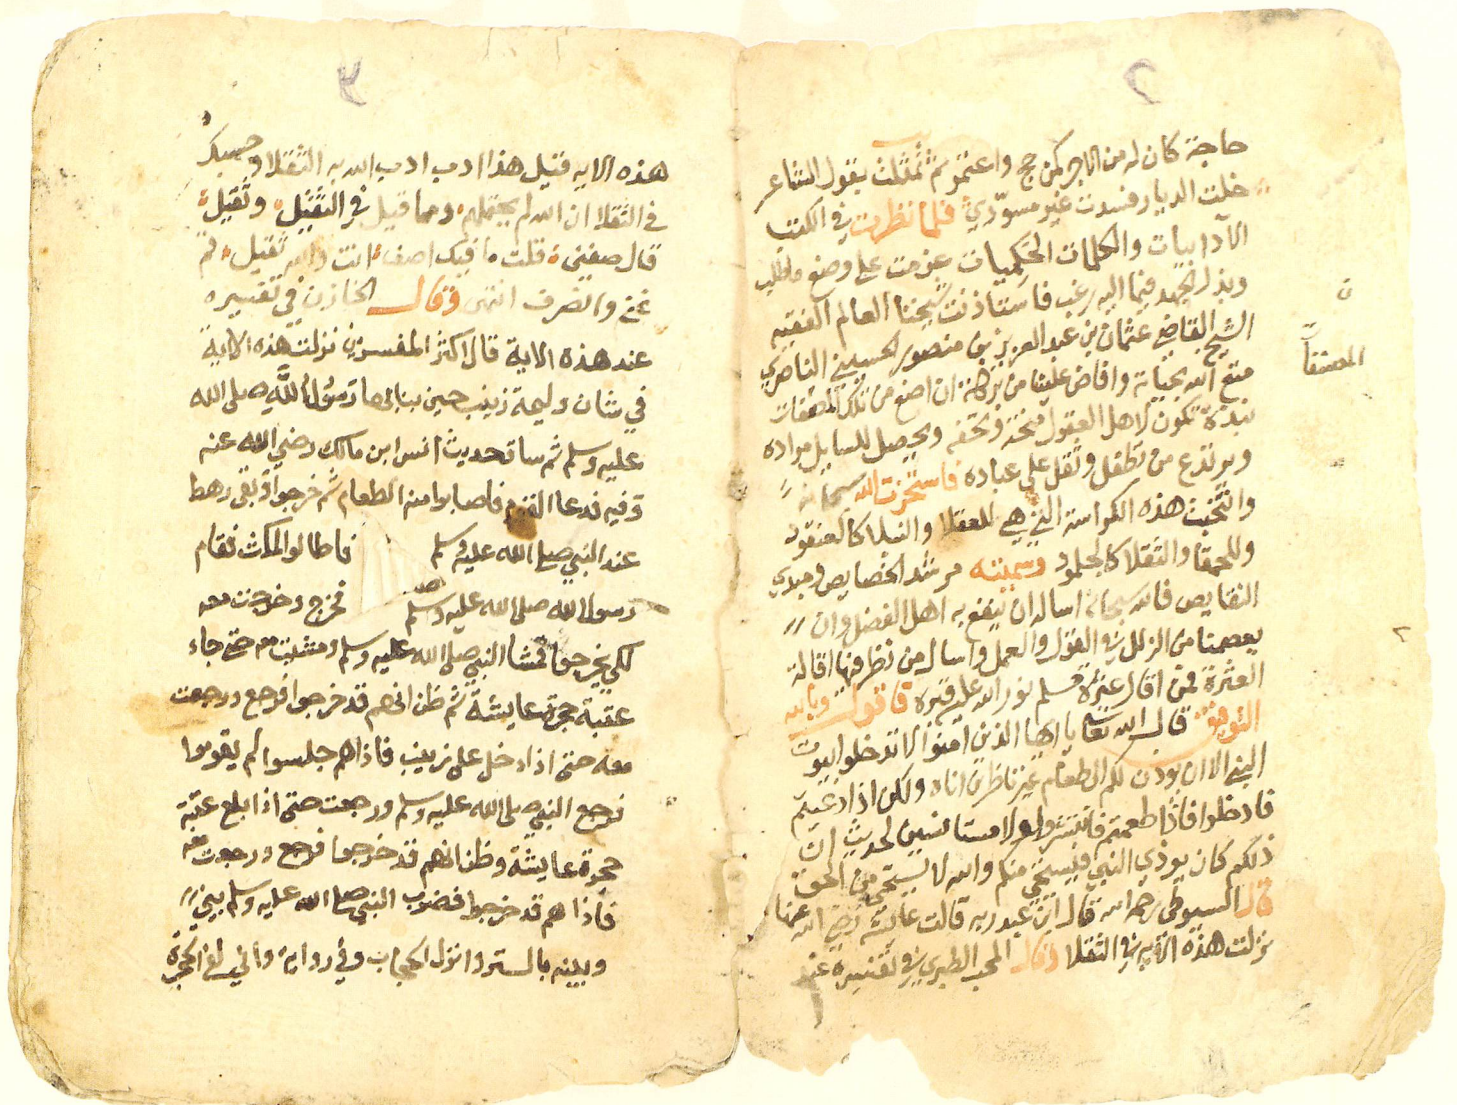 ٢
حاجة كان له من الاجر كمن حج واعتمر ثم تمثلت بقول الشاعر
خلت الديار فسدت غير مسودي فلما نظرت في الكتب
الآدابيات والكلمات الحكميات عزمت على وضع ما طلب
وبذل الجهد فيما اليه رغب فاستاذنت شيخنا العالم الفقيه
الشيخ القاضي عثمان بن عبد العزيز بن منصور الحسيني الناصري
متع الله بحياته وافاض علينا من بركاته ان اضع من تلك المصنفات
نبذة تكون لاهل العقول منحة وتحفه ويحصل للسايل مراده
ويرتدع من تطفل وثقل على عباده فاستخرت الله سبحانه
وانتخبت هذه الكراسة التي هي للعقلا والنبلا كالعنقود
وللحمقا والثقلا كالجلمود وسميته مرشد الخصايص ومبدي
النقايص فالله سبحانه اساله ان ينفع به اهل الفضل وان
يعصمنا من الزلل في القول والعمل واسال من نظر فيها اقالة
العثرة فمن اقال عثرة مسلم نور الله عليه قبره فاقول وبالله
التوفيق قال الله تعالى يا ايها الذين امنوا لا تدخلوا بيوت
النبي الا ان يوذن لكم الى طعام غير ناظرين اناه ولكن اذا دعيتم
فادخلوا فاذا طعمتم فانتشروا ولا مستانسين لحديث ان
ذلكم كان يوذي النبي فيستحي منكم والله لا يستحي من الحق
قال السيوطي رحمه الله قال ابن عبد ربه قالت عائشة رضي الله عنها
نزلت هذه الآية في الثقلا وقال المحب الطبري في تفسيره عند
ن
المصنفاً
٣
هذه الايه قيل هذا ادب ادب الله به الثقلا وحسبك
في الثقلا ان الله لم يحتملهم ومما قيل في الثقيل وثقيل
قال صفني قلت ما فيك اصف انت والله ثقيل قم
عني وانصرف انتهى وقال الخازن في تفسيره
عند هذه الاية قال اكثر المفسرين نزلت هذه الاية
في شان وليمة زينب حين بنا بها رسول الله صلى الله
عليه وسلم ثم ساق حديث انس ابن مالك رضي الله عنه
وفيه فدعا القوم فاصابوا من الطعام ثم خرجوا وبقي رهط
عند النبي صلى الله عليه وسلم فاطالوا المكث فقام
رسول الله صلى الله عليه وسلم فخرج وخرجت معه
لكي يخرجوا فمشا النبي صلى الله عليه وسلم ومشيت معه حتى جاء
عتبة حجرة عايشة ثم ظن انهم قد خرجوا فرجع ورجعت
معه حتى اذا دخل على زينب فاذا هم جلسوا لم يقوموا
فرجع النبي صلى الله عليه وسلم ورجعت حتى اذا بلغ عتبة
حجرة عايشة وظن انهم قد خرجوا فرجع ورجعت معه
فاذا هم قد خرجوا فضرب النبي صلى الله عليه وسلم بيني
وبينه بالستر وانزل الحجاب وفي رواية واني لفي الحجرة